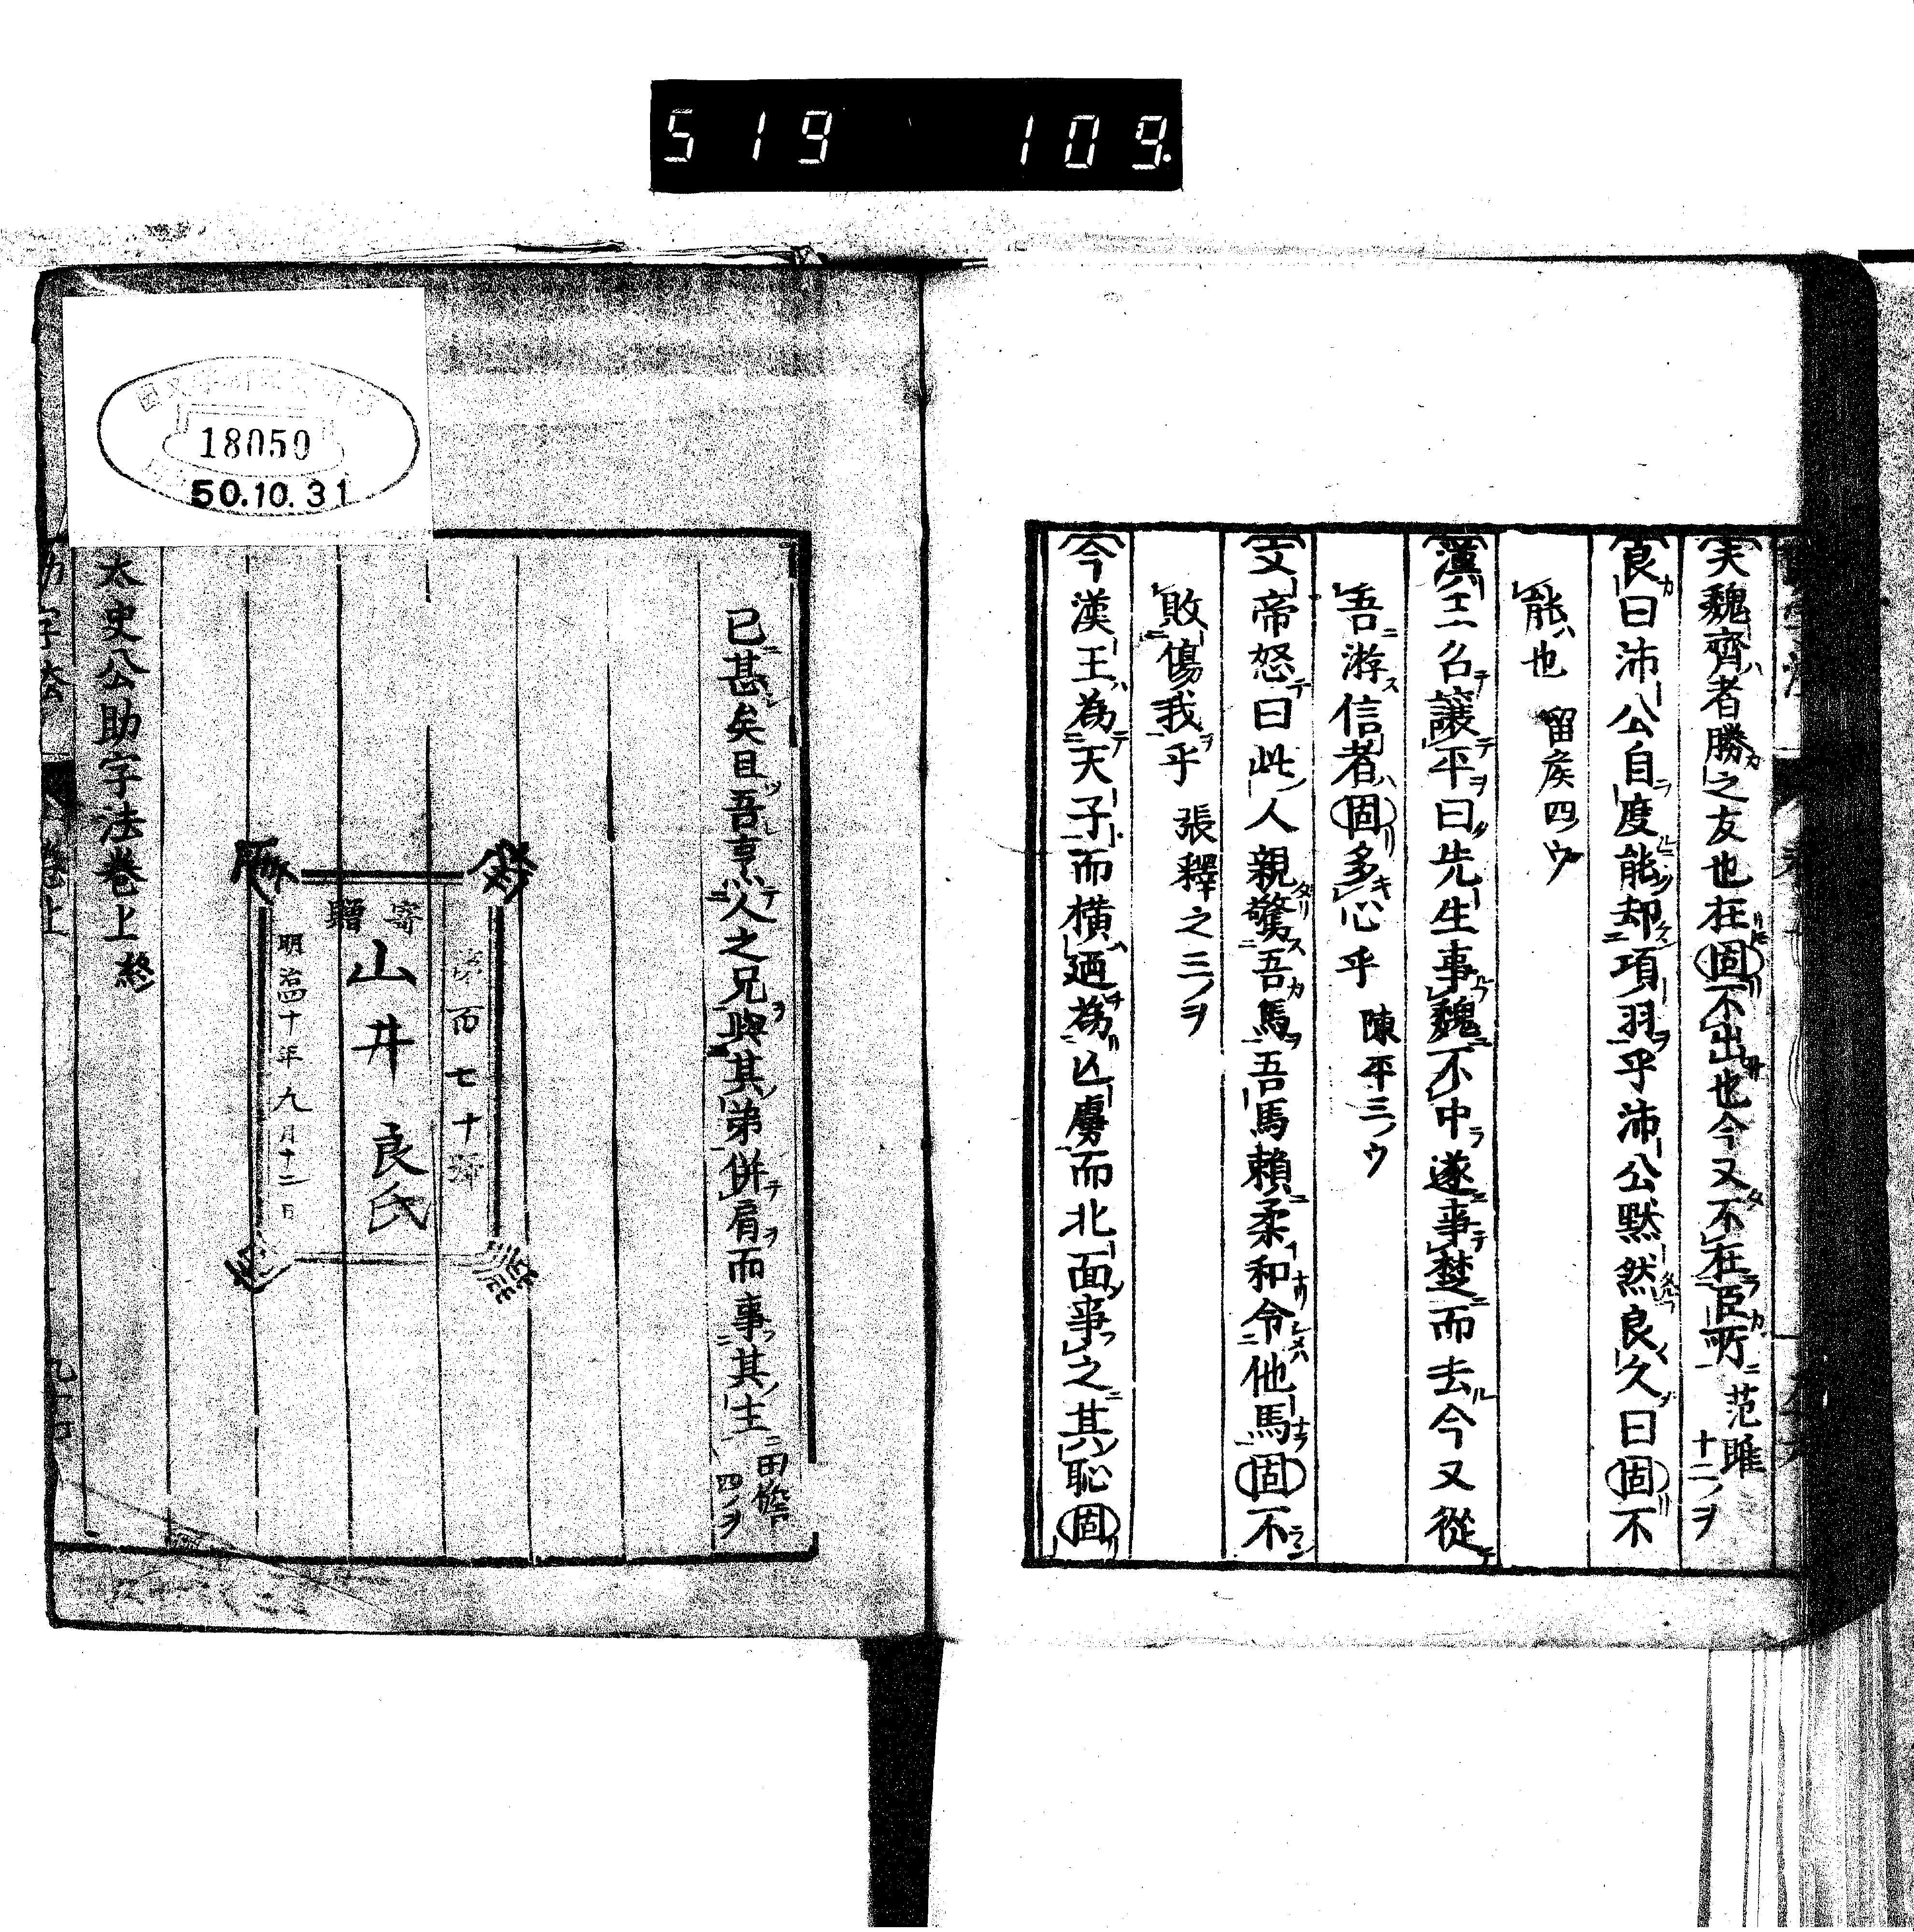 519 109.
夫魏齊者勝之友也在固不出也今又不在臣所 范雎十二ノヲ
良曰沛公自度能却項羽乎沛公黙然良久曰固不
能也 留矦四ノウ
漢王召譲平曰先生事魏不中遂事楚而去今又從
吾游信者固多心乎 陳平三ノウ
文帝怒曰此人親驚吾馬吾馬賴柔和令他馬固不
敗傷我乎 張釋之三ノヲ
今漢王為天子而橫廼為亾虜而北面事之其恥固
已甚矣且吾烹人之兄與其弟併肩而事其主 田儋四ノヲ
寄贈
山井良氏
明治四十年九月十二日
太史公助字法巻上終
18050
50.10.31